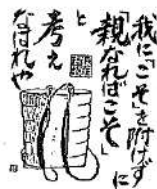 我に「こそ」を附けず
「親なればこそ」に
と
考え
なほれや